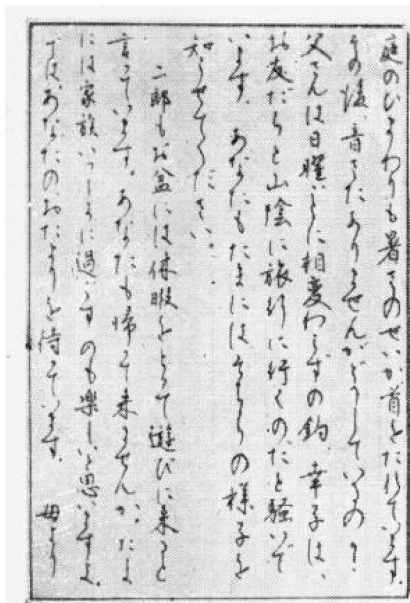 庭のひまわりも暑さのせいか首をたれています。
その後、音さたありませんがどうしているの?
父さんは日曜ごとに相変わらずの釣、幸子は、
お友だちと山陰に旅行に行くのだと騒いで
います。あなたもたまにはそちらの様子を
知らせてください。
二郎もお盆には休暇をとって遊びに来ると
言っています。あなたも帰って来ませんか。たま
には家族いっしょに過ごすのも楽しいと思いますよ。
では、あなたのおたよりを待っています。 母より